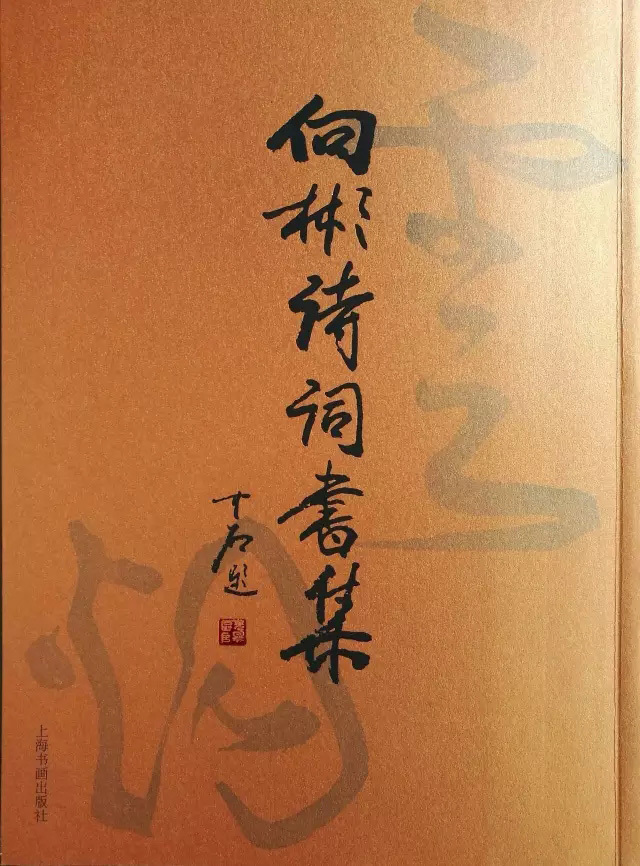 向彬诗词書集
十石题
上海书画出版社